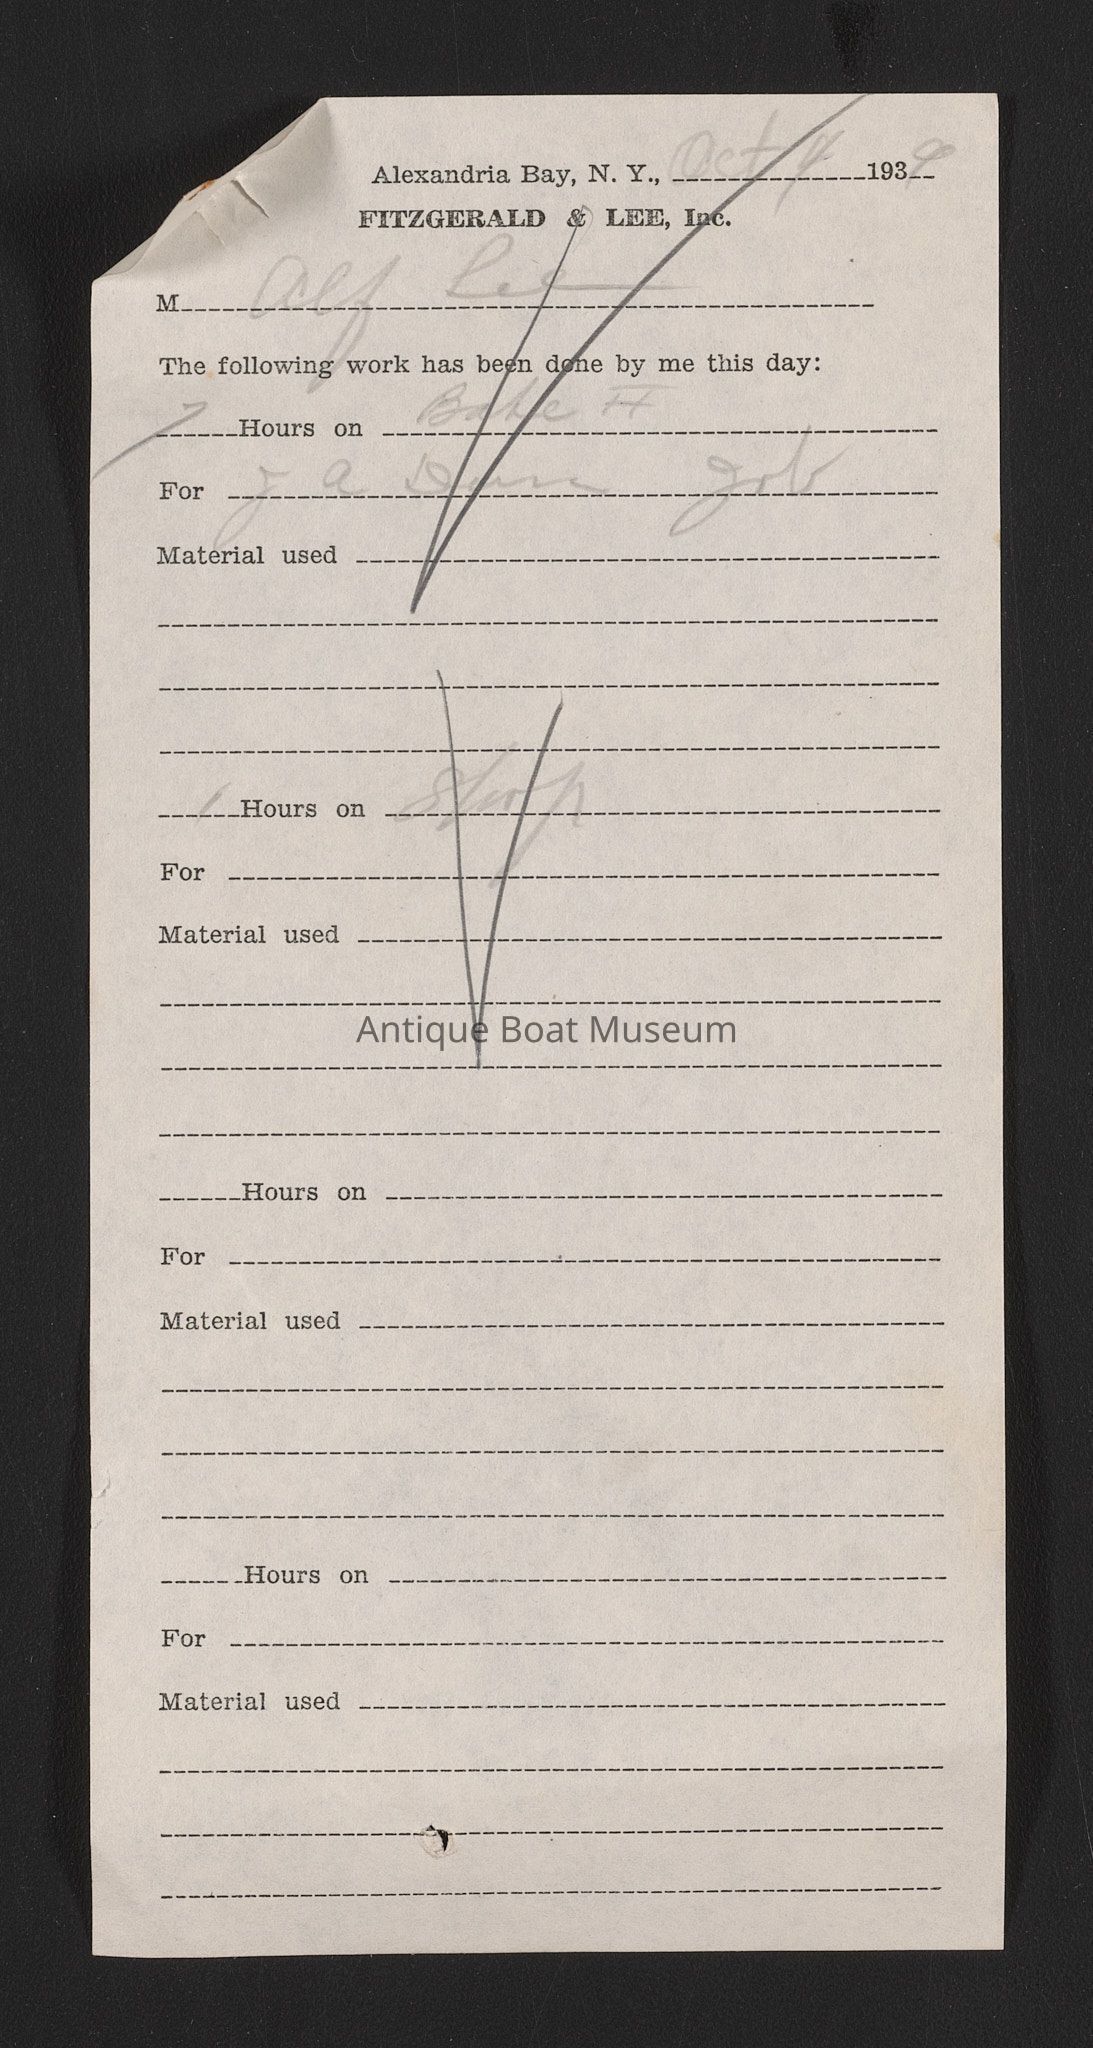 Alexandria Bay, N. Y., Oct 9 1939
FITZGERALD & LEE, Inc.
M Alf Lee
The following work has been done by me this day:
7 Hours on Babe II
For J a Dunn Job
Material used
1 Hours on Shop
For
Material used
Antique Boat Museum
Hours on
For
Material used
Hours on
For
Material used